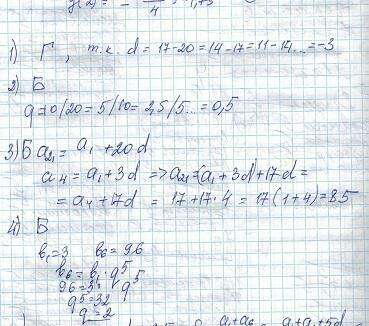 1) Г, т.к. d = 17-20 = 14-17 = 11-14... = -3
2) Б
q = 10/20 = 5/10 = 2,5/5... = 0,5
3) Б a₂₁ = a₁ + 20d
a₄ = a₁ + 3d => a₂₁ = (a₁ + 3d) + 17d =
= a₄ + 17d = 17 + 17·4 = 17(1+4) = 85
4) Б
b₁ = 3 b₆ = 96
b₆ = b₁·q⁵
96 = 3·q⁵
q⁵ = 32
q = 2